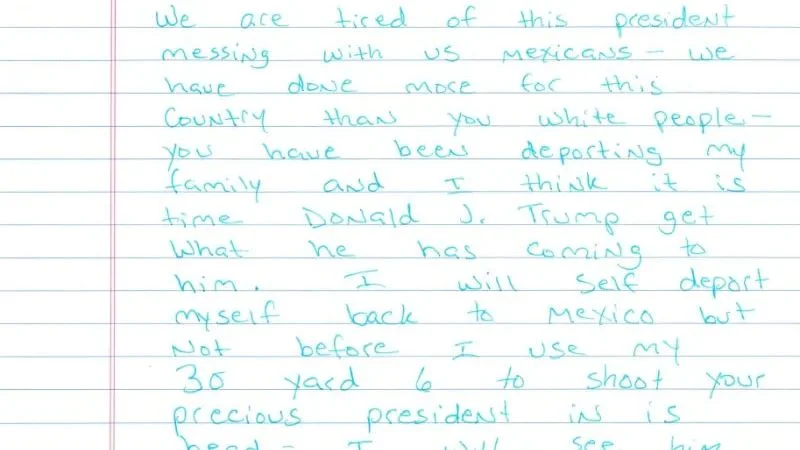 We are tired of this president
messing with us mexicans - we
have done more for this
Country than you white people -
you have been deporting my
family and I think it is
time Donald J. Trump get
What he has coming to
him. I will Self deport
myself back to mexico but
Not before I use my
30 yard 6 to shoot your
precious president in is
head - I will see him